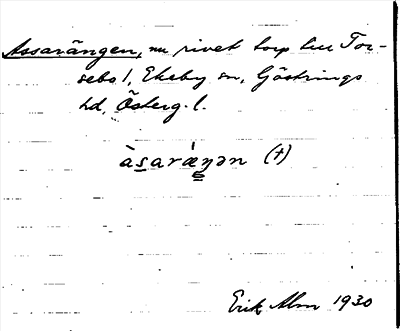 Assarängen, nu rivet torp till Tor-
sebo 1, Ekeby sn, Göstrings
hd, Österg. l.
àsaráeŋən (†)
Erik Alm 1930